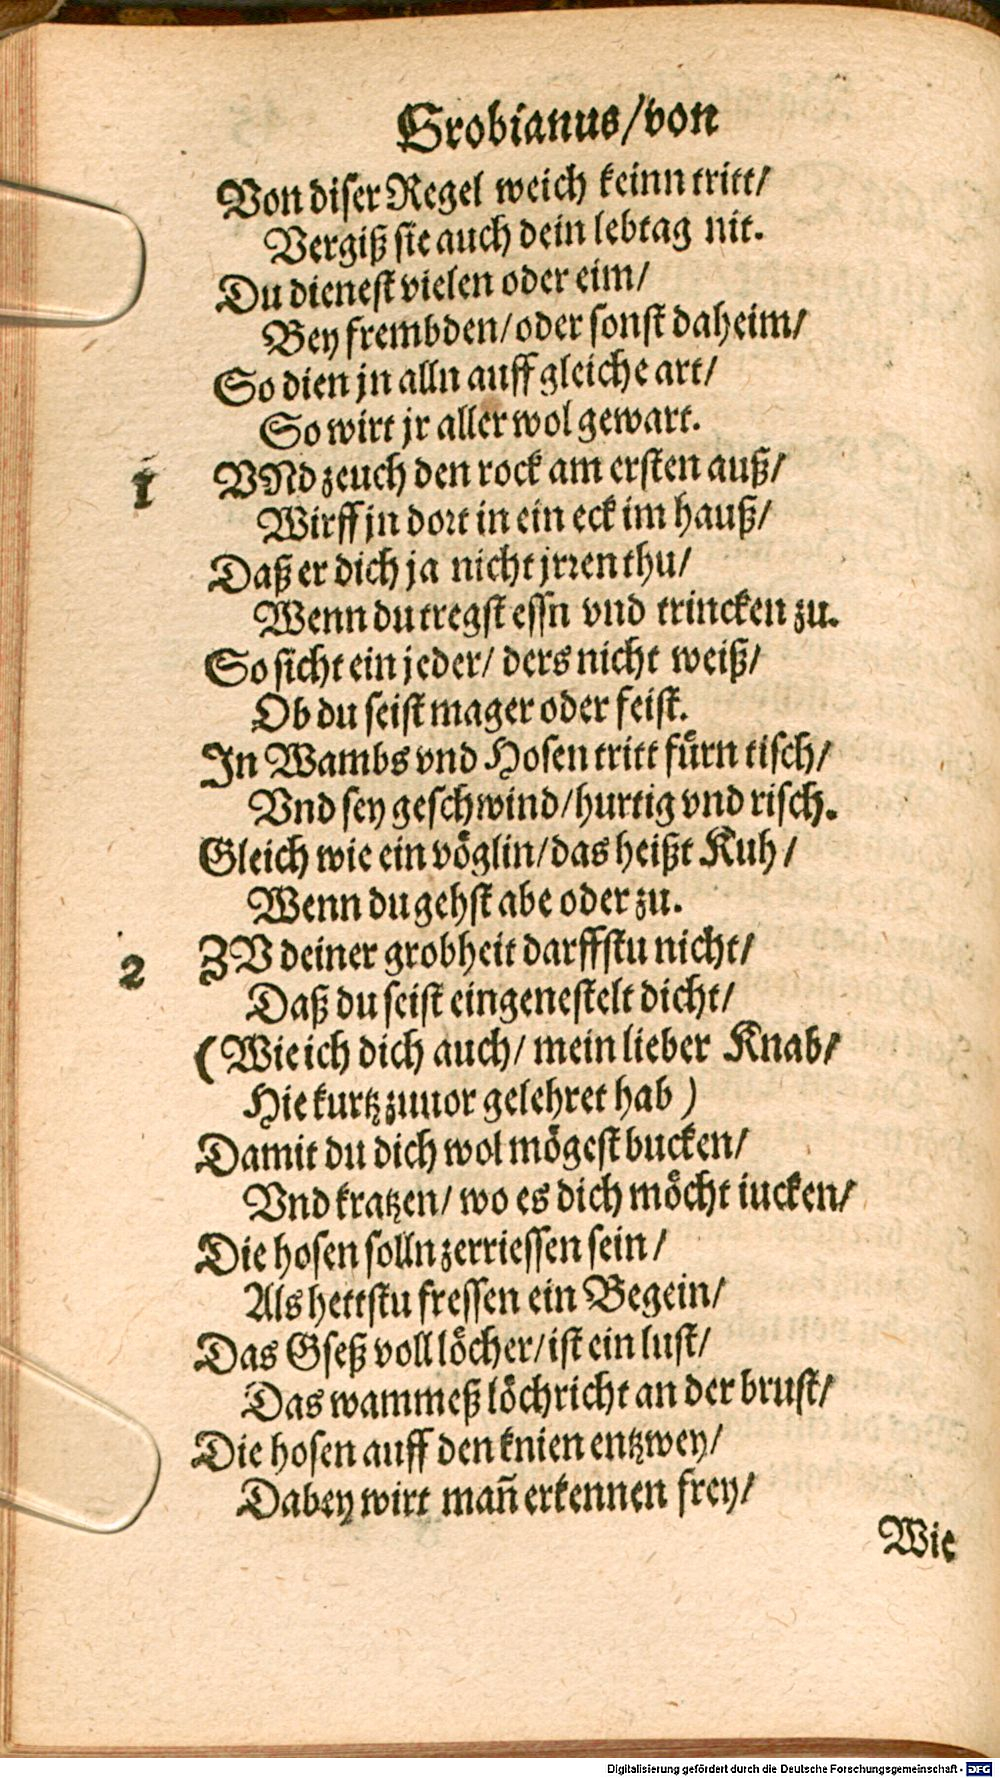 Grobianus/von
Von diser Regel weich keinn tritt/
Vergiß sie auch dein lebtag nit.
Du dienest vielen oder eim/
Bey frembden/oder sonst daheim/
So dien jn alln auff gleiche art/
So wirt jr aller wol gewart.
1 VNd zeuch den rock am ersten auß/
Wirff jn dort in ein eck im hauß/
Daß er dich ja nicht jrren thu/
Wenn du tregst essn vnd trincken zu.
So sicht ein jeder/ ders nicht weiß/
Ob du seist mager oder feist.
In Wambs vnd Hosen tritt fürn tisch/
Vnd sey geschwind/hurtig vnd risch.
Gleich wie ein vöglin/das heißt Kuh/
Wenn du gehst abe oder zu.
2 ZV deiner grobheit darffstu nicht/
Daß du seist eingenestelt dicht/
(Wie ich dich auch/ mein lieber Knab/
Hie kurtz zuuor gelehret hab)
Damit du dich wol mögest bucken/
Vnd kratzen/ wo es dich möcht iucken/
Die hosen solln zerriessen sein/
Als hettstu fressen ein Begein/
Das Gseß voll löcher/ist ein lust/
Das wammeß löchricht an der brust/
Die hosen auff den knien entzwey/
Dabey wirt mañ erkennen frey/
Wie
Digitalisierung gefördert durch die Deutsche Forschungsgemeinschaft - DFG